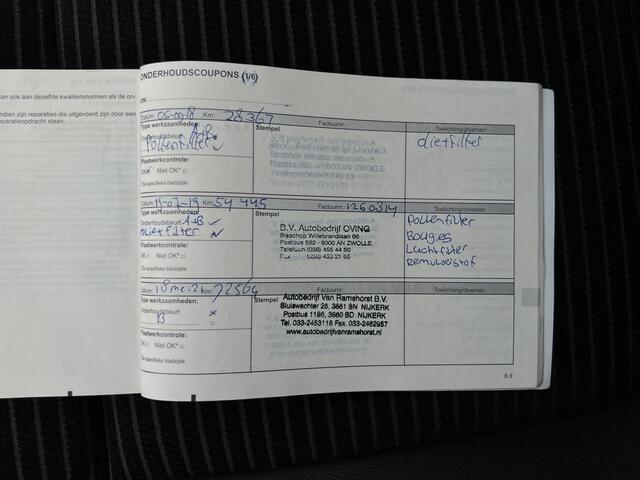 dan ook aan dezelfde kwaliteitsnormen als de on-
dien zijn reparaties die uitgevoerd zijn door een
eparatieopdracht slaan.
ONDERHOUDSCOUPONS (1/6)
VIN:
Datum: Km: 28367
Factuurnr.:
Type werkzaamheden: Stempel Toelichting/diversen
Onderhoudsbeurt A+B
Pollenfilter
dietfilter
Plaatwerkcontrole:
OK Niet OK*
*Zie specifieke bladzijde
Datum: 15-07-19 Km: 54 445 Factuurnr.: 1260314
Type werkzaamheden: Stempel Toelichting/diversen
Onderhoudsbeurt A+B
filter
B.V. Autobedrijf OVING
Bisschop Willebrandlaan 66
Postbus 562 - 8000 AN ZWOLLE
Telefoon (038) 455 44 60
Fax (038) 453 21 55
Pollenfilter
Bougies
Luchtfilter
remvloeistof
Plaatwerkcontrole:
OK Niet OK*
*Zie specifieke bladzijde
Datum: 18 mei 21 Km: 72564
Type werkzaamheden: Stempel Toelichting/diversen
Onderhoudsbeurt
B
Autobedrijf Van Ramshorst B.V.
Sluiswachter 26, 3861 SN NIJKERK
Postbus 1186, 3860 BD NIJKERK
Tel. 033-2453118 Fax. 033-2462957
www.autobedrijfvanramshorst.nl
Plaatwerkcontrole:
OK Niet OK*
*Zie specifieke bladzijde
6.9